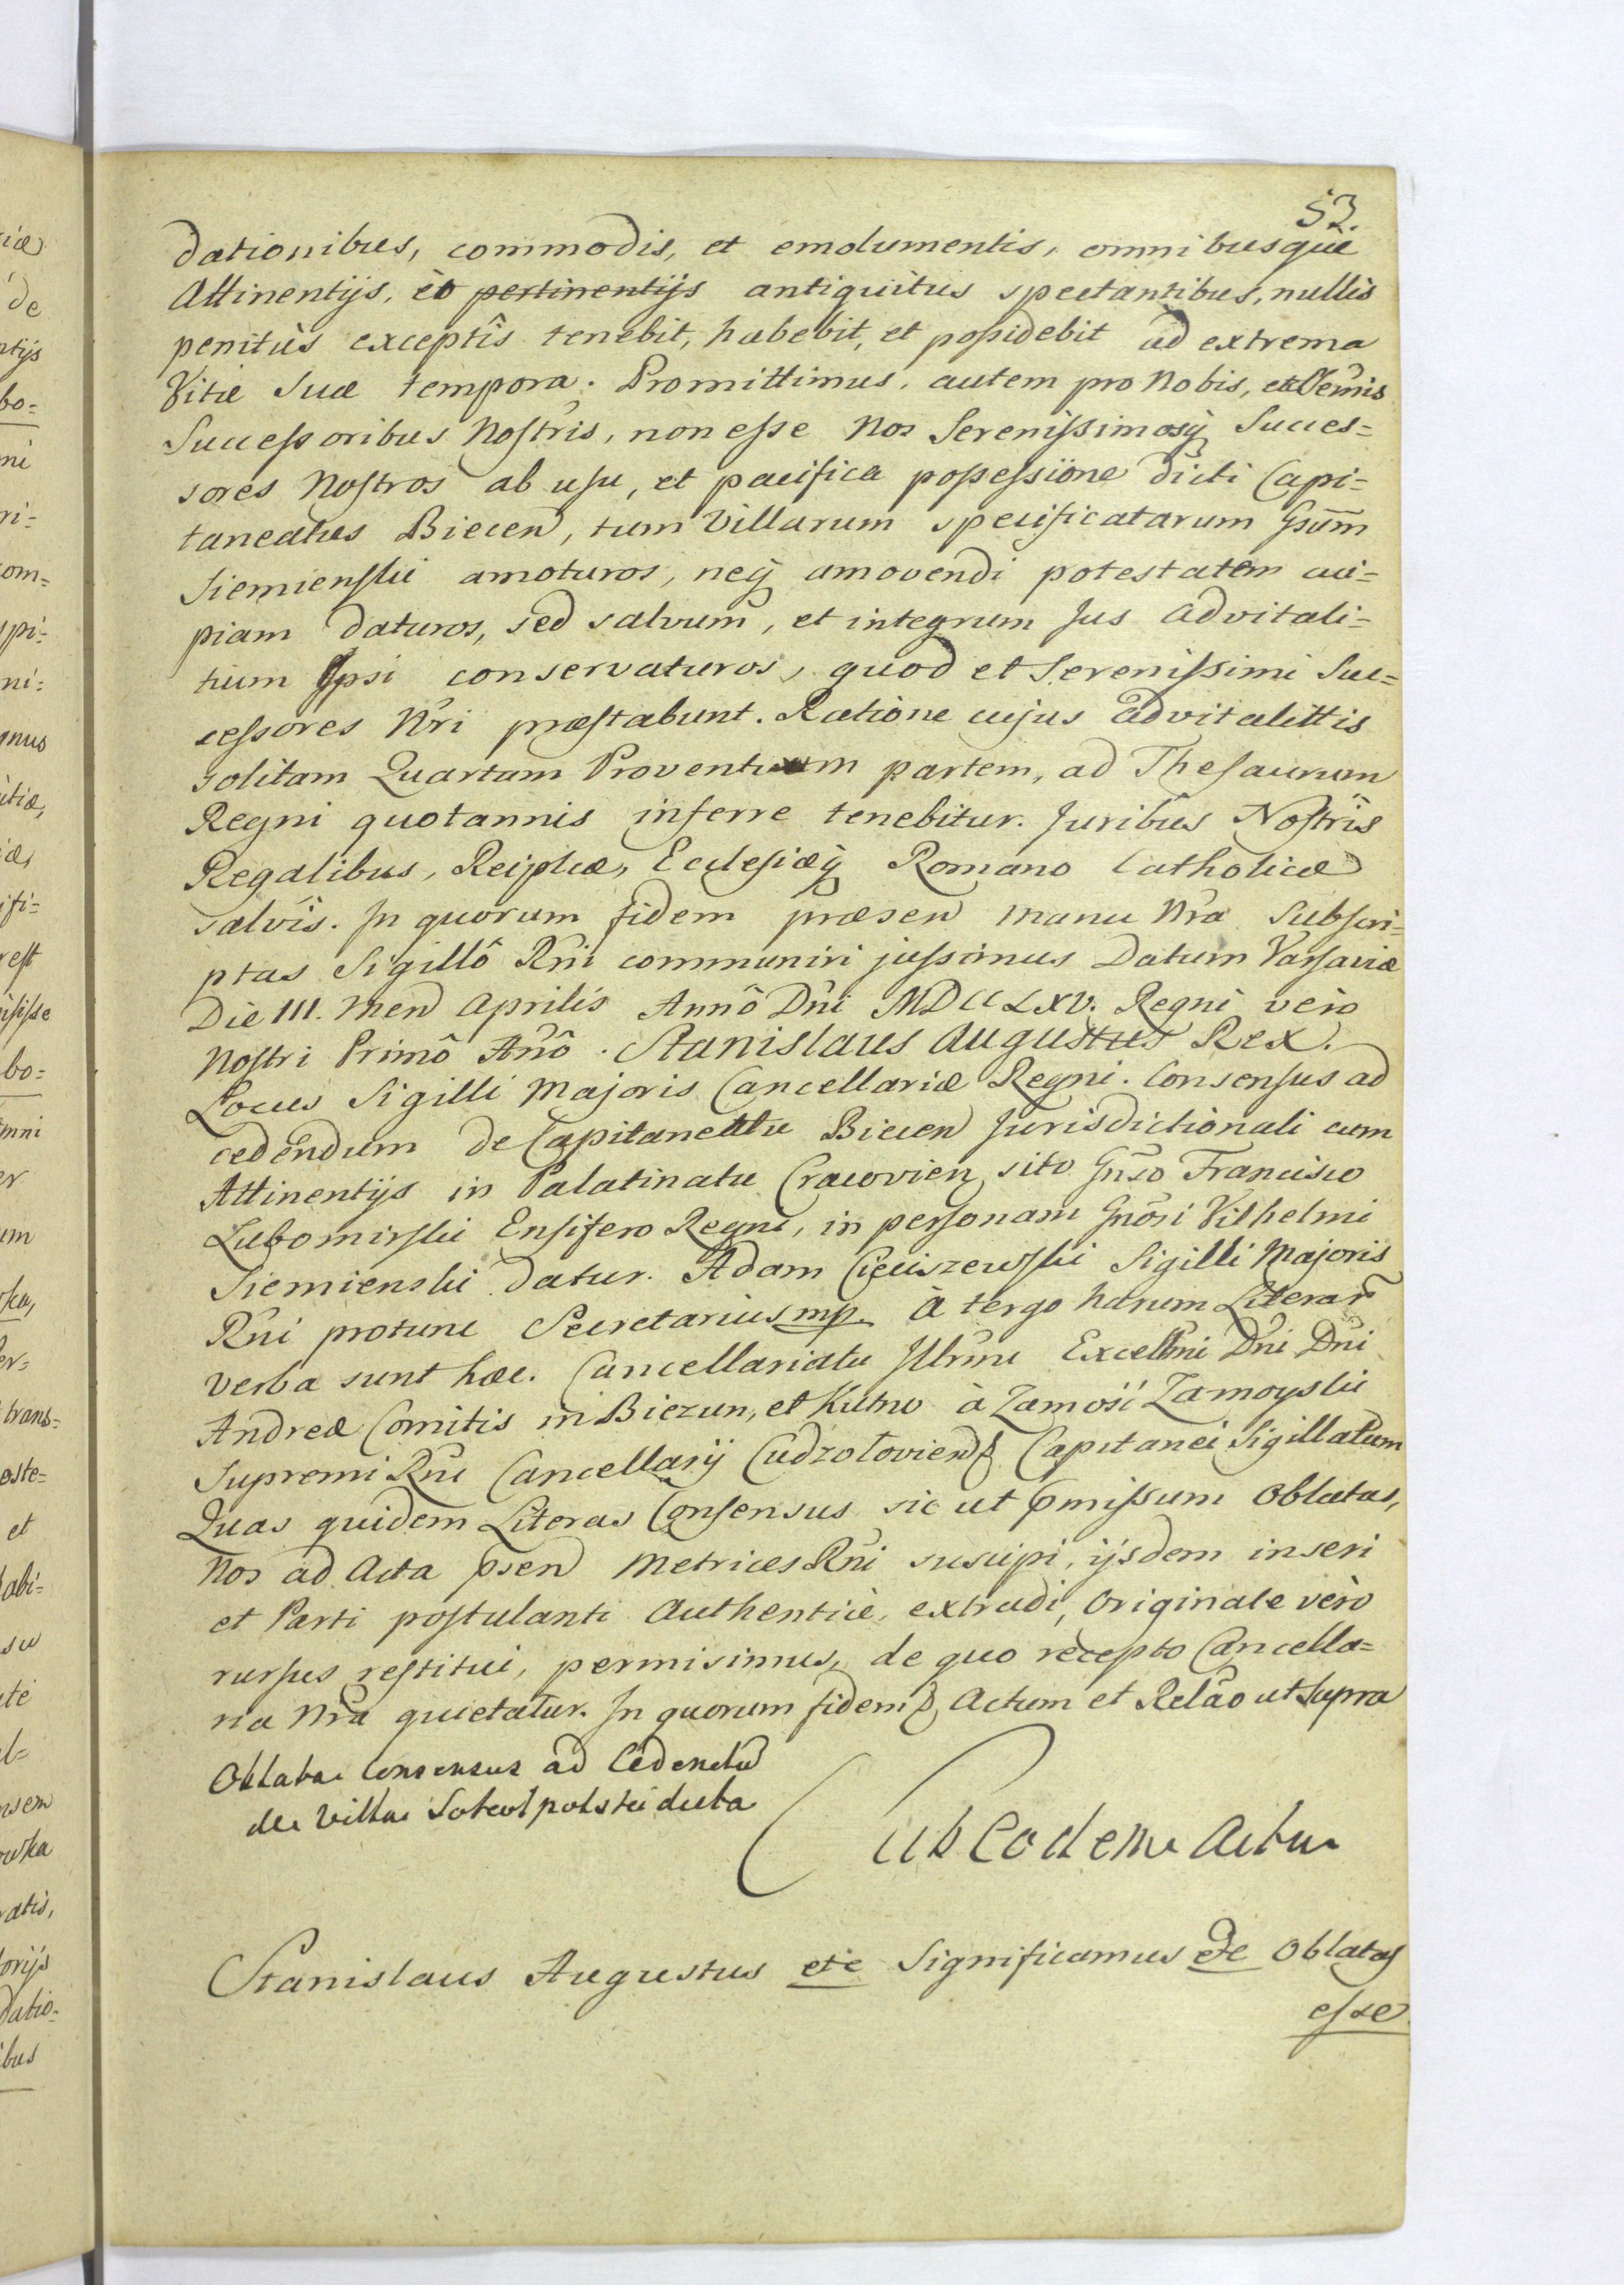 53.
dationibus, commodis, et emolumentis, omnibusque
Attinentijs, et pertinentijs antiquitùs spectantibus, nullis
penitùs exceptîs tenebit, habebit, et possidebit ad extrema
Vitæ Suæ tempora. Promittimus, autem pro Nobis, et Sermis
Successoribus Nostris, non esse Nos Serenissimosq̃ Succes=
sores Nostros ab usu, et pacifica possessione dicti Capi=
taneatus Biecen, tum Villarum specificatarum Gsũm
Siemienski amoturos, neq̃ amovendi potestatem cui=
piam daturos, sed salvum, et integrum Jus advitali=
tium Ipsi conservaturos, quod et Serenissimi Suc=
cessores Nr̃i præstabunt. Ratione cujus advitalittis
solitam Quartam Proventuum partem, ad Thesaurum
Regni quotannis inferre tenebitur. Juribus Nostris
Regalibus, Reiplicæ, Ecclesiæq̃ Romano Catholicæ
salvîs. In quorum fidem præsen manu Nr̃a Subscri=
ptas Sigillô Rñi communiri jussimus Datum Varsaviæ
Die III. Men Aprilis Annô Dñi MDCCLXV. Regni vero
Nostri Primô Añô. Stanislaus Augustus Rex.
Locus Sigilli Majoris Cancellariæ Regni. Consensus ad
cedendum de Capitaneatu Biecen Jurisdictionali cum
Attinentijs in Palatinatu Cracovien sito Gñso Francisco
Lubomirski Ensifero Regni, in personam Gñosi Vilhelmi
Siemienski datur. Adam Cieciszewski Sigilli Majoris
Rñi protunc Secretarius mp. à tergo harum Literar̃
verba sunt hæc. Cancellariatu Illrm̃i Excellm̃i Dñi Dñi
Andreæ Comitis in Biezun, et Kutno à Zamość Zamoyski
Supremi Rñi Cancellarij Capitanei Sigillatum
Quas quidem Literas Consensus sic ut p̃missum Oblatas,
Nos ad Acta p̃sen Metrices Rñi suscipi, ijsdem inseri
et Parti postulanti Authenticè, extradi, Originale verò
rursus restitui, permisimus, de quo recepto Cancella=
ria Nr̃a quietatur. In quorum fidem Actum et Relão ut Supra
Oblata Consensus ad Cedendũ
de Villa
Sub eodem Actu
Stanislaus Augustus etc Significamus etc Oblatas
esse